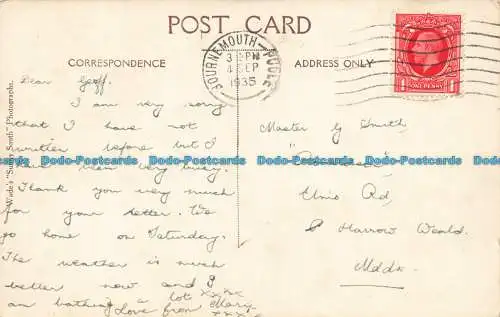 POST CARD
CORRESPONDENCE
ADDRESS ONLY
BOURNEMOUTH-POOLE
3 PM
4 SEP
1935
ONE PENNY
Wade's "Sunny South" Photographs.
Dear Geoff.
I am very sorry
that I have not
written before but I
have been very busy.
Thank you very much
for your letter. We
go home on Saturday.
The weather is much
better now and I
am bathing a lot xxxx
Love from Mary
xxxx
Master G Smith,
Rd,
Harrow Weald.
Mddx.
Dodo-Postcards Dodo-Postcards Dodo-Postcards Dodo-Postcards
Dodo-Postcards Dodo-Postcards Dodo-Postcards Dodo-Postcards